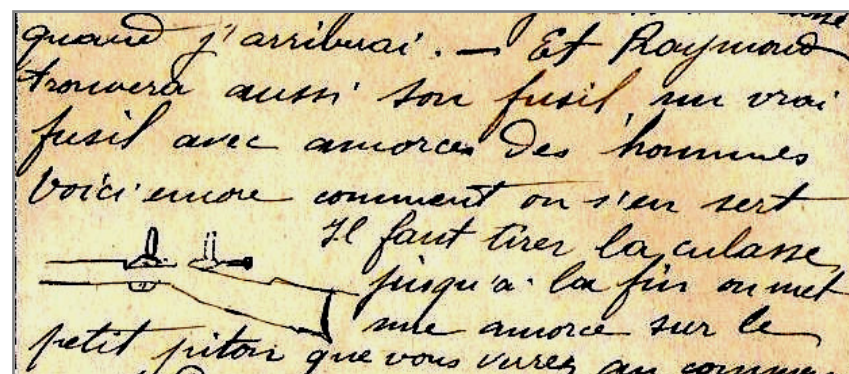 quand j'arriverai. — Et Raymond
trouvera aussi son fusil, un vrai
fusil avec amorces des hommes
Voici encore comment on s'en sert
Il faut tirer la culasse
jusqu'à la fin on met
une amorce sur le
petit piton que vous verrez au